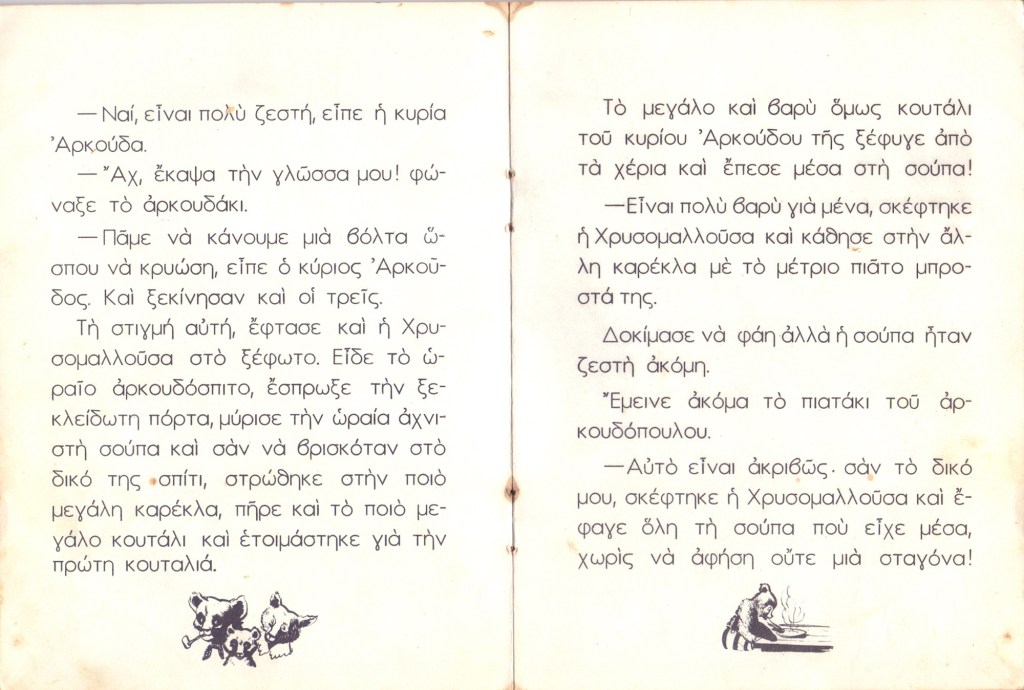 — Ναί, εἶναι πολὺ ζεστή, εἶπε ἡ κυρία
Ἀρκούδα.
— Ἄχ, ἔκαψα τὴν γλῶσσα μου! φώ-
ναξε τὸ ἀρκουδάκι.
— Πᾶμε νὰ κάνουμε μιὰ βόλτα ὥ-
σπου νὰ κρυώση, εἶπε ὁ κύριος Ἀρκοῦ-
δος. Καὶ ξεκίνησαν καὶ οἱ τρεῖς.
Τὴ στιγμή αὐτή, ἔφτασε καὶ ἡ Χρυ-
σομαλλοῦσα στὸ ξέφωτο. Εἶδε τὸ ὡ-
ραῖο ἀρκουδόσπιτο, ἔσπρωξε τὴν ξε-
κλείδωτη πόρτα, μύρισε τὴν ὡραία ἀχνι-
στὴ σούπα καὶ σὰν νὰ βρισκόταν στὸ
δικό της σπίτι, στρώθηκε στὴν ποιὸ
μεγάλη καρέκλα, πῆρε καὶ τὸ ποιὸ με-
γάλο κουτάλι καὶ ἑτοιμάστηκε γιὰ τὴν
πρώτη κουταλιά.
Τὸ μεγάλο καὶ βαρὺ ὅμως κουτάλι
τοῦ κυρίου Ἀρκούδου τῆς ξέφυγε ἀπὸ
τὰ χέρια καὶ ἔπεσε μέσα στὴ σούπα!
— Εἶναι πολὺ βαρὺ γιὰ μένα, σκέφτηκε
ἡ Χρυσομαλλοῦσα καὶ κάθησε στὴν ἄλ-
λη καρέκλα μὲ τὸ μέτριο πιᾶτο μπρο-
στά της.
Δοκίμασε νὰ φάη ἀλλὰ ἡ σούπα ἦταν
ζεστὴ ἀκόμη.
Ἔμεινε ἀκόμα τὸ πιατάκι τοῦ ἀρ-
κουδόπουλου.
— Αὐτὸ εἶναι ἀκριβῶς· σὰν τὸ δικό
μου, σκέφτηκε ἡ Χρυσομαλλοῦσα καὶ ἔ-
φαγε ὅλη τὴ σούπα ποὺ εἶχε μέσα,
χωρὶς νὰ ἀφήση οὔτε μιὰ σταγόνα!